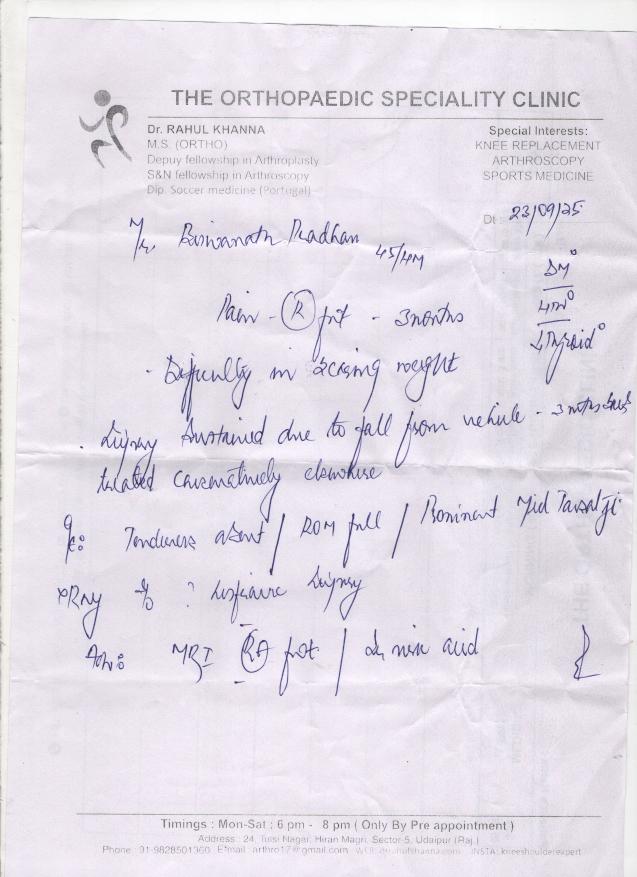 THE ORTHOPAEDIC SPECIALITY CLINIC
Dr. RAHUL KHANNA
M.S. (ORTHO)
Depuy fellowship in Arthroplasty
S&N fellowship in Arthroscopy
Dip. Soccer medicine (Portugal)
Special Interests:
KNEE REPLACEMENT
ARTHROSCOPY
SPORTS MEDICINE
Dt: 23/09/25
Mr. Biswanath Pradhan 45/M
DM°
HTN°
Thyroid°
Pain - (R) foot - 3 months
- Difficulty in bearing weight
. Injury sustained due to fall from vehicle - 3 months back
treated conservatively elsewhere
O/E: Tenderness absent / ROM full / Prominent Mid Tarsal jt.
XRay ? Lisfranc Injury
Adv: MRI (R) foot / uric acid
Timings : Mon-Sat : 6 pm - 8 pm ( Only By Pre appointment )
Address : 24, Tulsi Nagar, Hiran Magri, Sector-5, Udaipur (Raj.)
Phone : 91-9828501360 E'mail : arthro17@gmail.com INSTA: kneeshoulderexpert